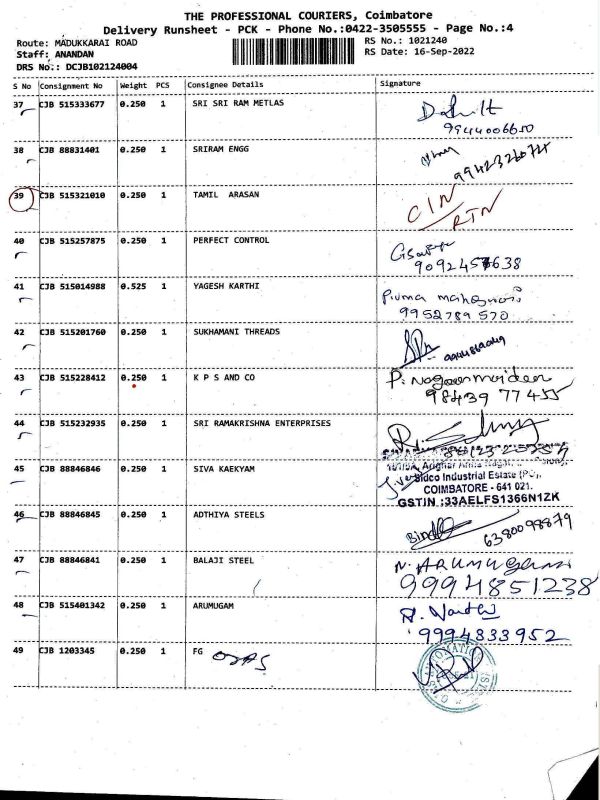 THE PROFESSIONAL COURIERS, Coimbatore
Delivery Runsheet - PCK - Phone No.:0422-3505555 - Page No.:4
Route: MADUKKARAI ROAD
RS No.: 1021240
Staff: ANANDAN
RS Date: 16-Sep-2022
DRS No.: DCJB102124004
S No Consignment No Weight PCS Consignee Details Signature
37 CJB 515333677 0.250 1 SRI SRI RAM METLAS
9944006650
38 CJB 88831401 0.250 1 SRIRAM ENGG
39 CJB 515321010 0.250 1 TAMIL ARASAN CIN
RTN
40 CJB 515257875 0.250 1 PERFECT CONTROL
41 CJB 515014988 0.525 1 YAGESH KARTHI
9952789570
42 CJB 515201760 0.250 1 SUKHAMANI THREADS
43 CJB 515228412 0.250 1 K P S AND CO
98439 77455
44 CJB 515232935 0.250 1 SRI RAMAKRISHNA ENTERPRISES
45 CJB 88846846 0.250 1 SIVA KAEKYAM
Sidco Industrial Estate
COIMBATORE - 641 021.
GSTIN :33AELFS1366N1ZK
46 CJB 88846845 0.250 1 ADTHIYA STEELS
6380098879
47 CJB 88846841 0.250 1 BALAJI STEEL N. ARUMUGAM
9994851238
48 CJB 515401342 0.250 1 ARUMUGAM
9994833952
49 CJB 1203345 0.250 1 FG